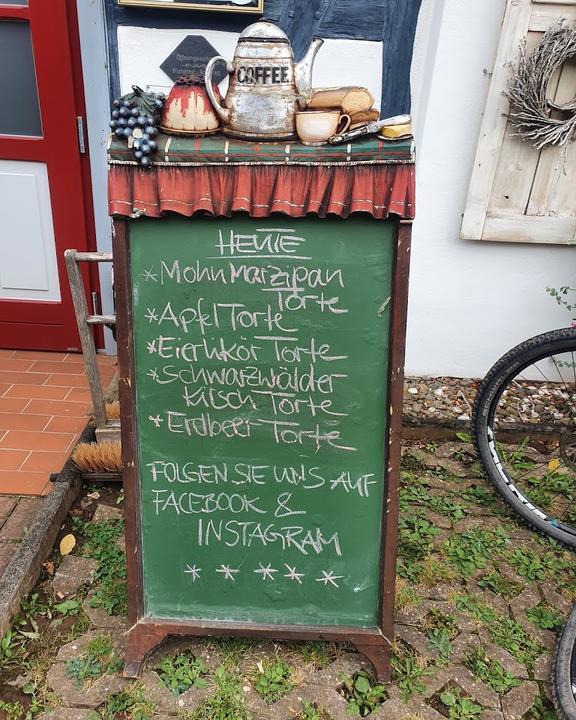 COFFEE
HEUTE
* Mohn Marzipan
Torte
* Apfel Torte
* Eierlikör Torte
* Schwarzwälder
Kirsch Torte
* Erdbeer Torte
FOLGEN SIE UNS AUF
FACEBOOK &
INSTAGRAM
* * * * *